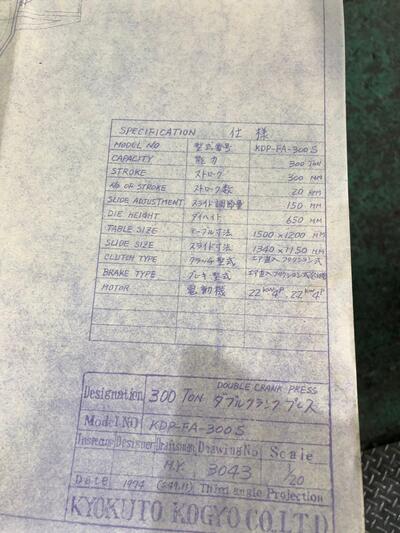 SPECIFICATION 仕様
MODEL NO 型式番号 KDP-FA-300S
CAPACITY 能力 300 TON
STROKE ストローク 300 MM
NO OF STROKE ストローク数 20 MM
SLIDE ADJUSTMENT スライド調節量 150 MM
DIE HEIGHT ダイハイト 650 MM
TABLE SIZE テーブル寸法 1500×1200 MM
SLIDE SIZE スライド寸法 1340×1150 MM
CLUTCH TYPE クラッチ型式
BRAKE TYPE ブレーキ型式
MOTOR 電動機 22KW 4P, 22KW 4P
Designation 300 TON DOUBLE CRANK PRESS
ダブルクランクプレス
Model NO KDP-FA-300S
Inspector Designer Draftsman Drawing No Scale
H.Y. 3043 1/20
Date 1974 (S49.11) Third angle Projection
KYOKUTO KOGYO CO.LTD